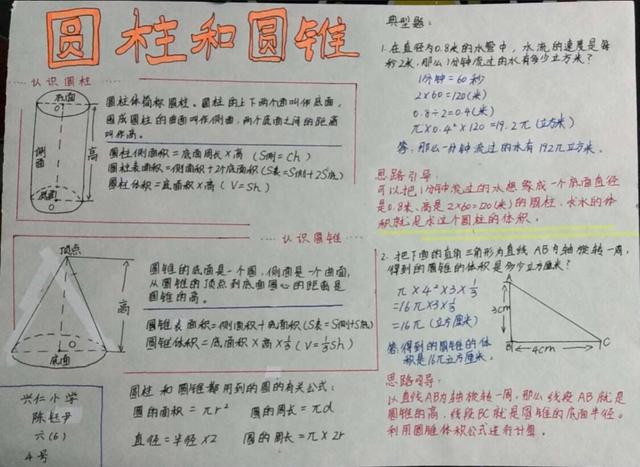 圆柱和圆锥
认识圆柱
底面
O
侧面
高
底面
O
圆柱体简称圆柱。圆柱的上下两个面叫作底面,
围成圆柱的曲面叫作侧面,两个底面之间的距离
叫作高。
圆柱侧面积=底面周长×高(S侧=Ch)
圆柱表面积=侧面积+2个底面积(S表=S侧+2S底)
圆柱体积=底面积×高(V=Sh)
认识圆锥
顶点
高
O
底面
圆锥的底面是一个圆,侧面是一个曲面,
从圆锥的顶点到底面圆心的距离是
圆锥的高。
圆锥表面积=侧面积+底面积(S表=S侧+S底)
圆锥体积=底面积×高×1/3(V=1/3Sh)
兴仁小学
六(6)
4号
圆柱和圆锥都用到的圆的有关公式:
圆的面积=πr² 圆的周长=πd
直径=半径×2 圆的周长=π×2r
典型题:
1.在直径为0.8米的水管中,水流的速度是每
秒2米,那么1分钟流过的水有多少立方米?
1分钟=60秒
2×60=120(米)
0.8÷2=0.4(米)
π×0.4²×120=19.2π(立方米)
答:那么一分钟流过的水有19.2π立方米。
思路引导:
可以把1分钟流过的水想象成一个底面直径
是0.8米、高是2×60=120(米)的圆柱,求水的体
积就是求这个圆柱的体积。
2.把下面的直角三角形为直线AB为轴旋转一周,
得到的圆锥的体积是多少立方厘米?
π×4²×3×1/3
=16π×3×1/3
=16π(立方厘米)
答:得到的圆锥的体
积是16π立方厘米。
A
3cm
B
4cm
C
思路引导:
以直线AB为轴旋转一周,那么线段AB就是
圆锥的高,线段BC就是圆锥的底面半径。
利用圆锥体积公式进行计算。